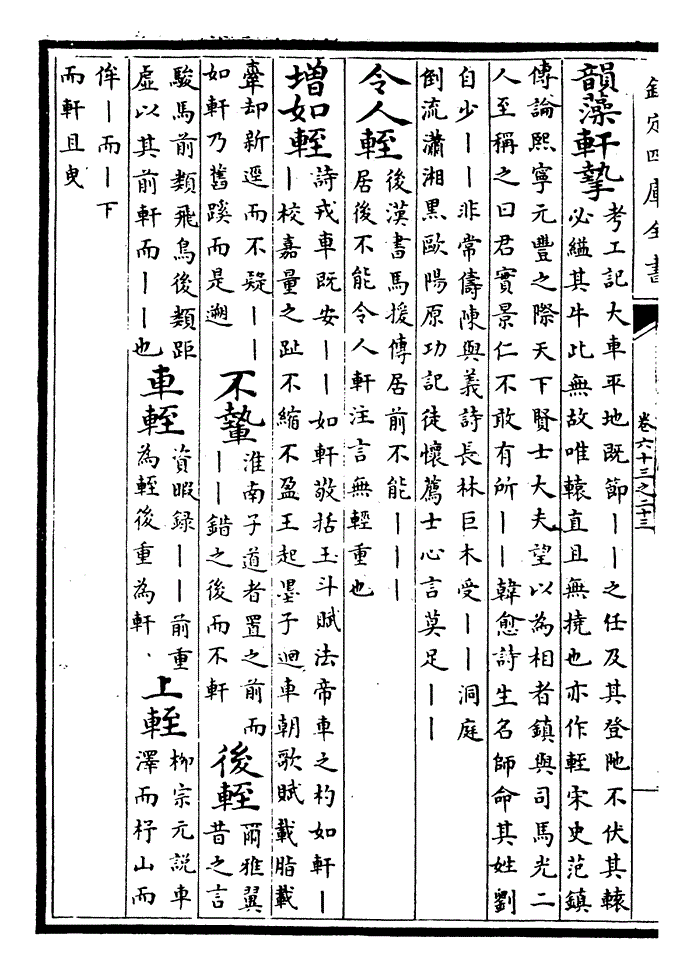 欽定四庫全書
卷六十三之二十三
韻藻軒摯
考工記大車平地既節丨丨之任及其登阤不伏其轅
必縊其牛此無故唯轅直且無撓也亦作輊宋史范鎮
傳論熙寧元豐之際天下賢士大夫望以為相者鎮與司馬光二
人至稱之曰君實景仁不敢有所丨丨韓愈詩生名師命其姓劉
自少丨丨非常儔陳與義詩長林巨木受丨丨洞庭
倒流瀟湘黒歐陽原功記徒懷薦士心言莫足丨丨
令人輊
後漢書馬援傳居前不能丨丨丨
居後不能令人軒注言無輕重也
増如輊
詩戎車既安丨丨如軒敬括玉斗賦法帝車之杓如軒丨
丨校嘉量之趾不縮不盈王起墨子迴車朝歌賦載脂載
舝却新逕而不疑丨丨
如軒乃舊蹊而是遡
不䡈
淮南子道者置之前而
丨丨錯之後而不軒
後輊
爾雅翼
昔之言
駿馬前類飛鳥後類距
虛以其前軒而丨丨也
車輊
資暇録丨丨前重
為輊後重為軒、
上輊
柳宗元說車
澤而杼山而
侔丨而丨下
而軒且曳